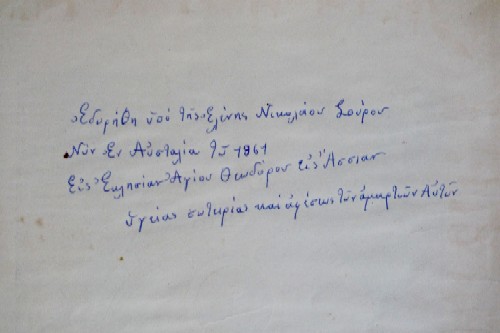 Ἐδορήθη ὑπό τῆς Ἑλένης Νικολάου Σούρου
Νῦν Ἐν Αὐσταλία τῶ 1961
Εἰς Ἐκλησίαν Ἁγίου Θεοδόρου εἰς Ἄσσιαν
ὑγείας σωτηρίας και ἀφέσεως τῶν ἁμαρτιῶν Αὐτῶν